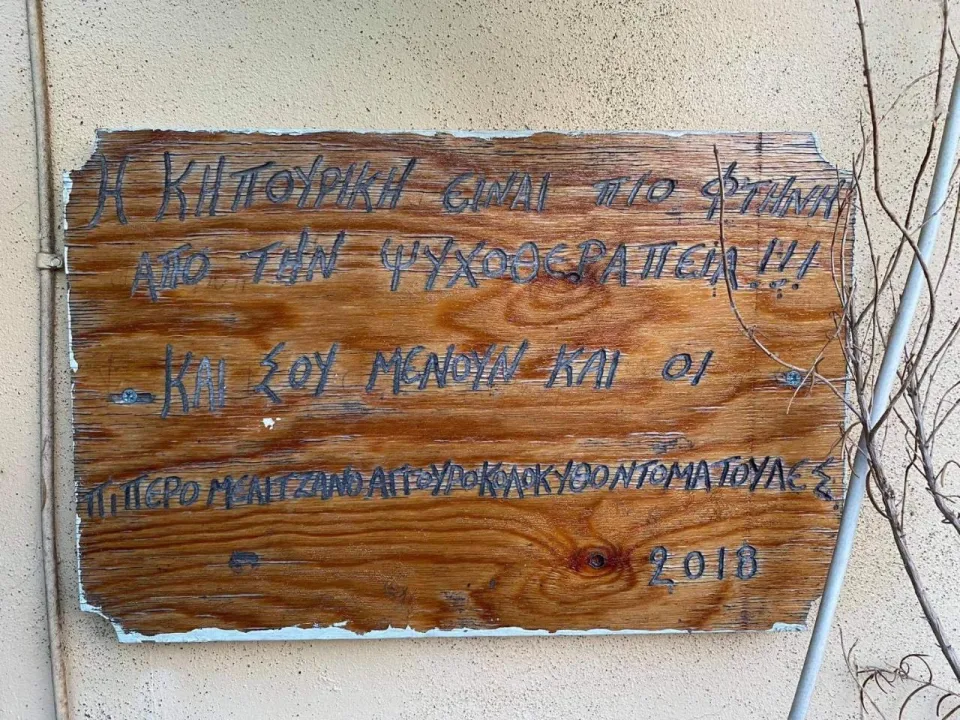 Η ΚΗΠΟΥΡΙΚΗ ΕΙΝΑΙ ΠΙΟ ΦΤΗΝΗ
ΑΠΟ ΤΗΝ ΨΥΧΟΘΕΡΑΠΕΙΑ!!!
..ΚΑΙ ΣΟΥ ΜΕΝΟΥΝ ΚΑΙ ΟΙ
ΠΙΠΕΡΟΜΕΛΙΤΖΑΝΟΑΓΓΟΥΡΟΚΟΛΟΚΥΘΟΝΤΟΜΑΤΟΥΛΕΣ
2018